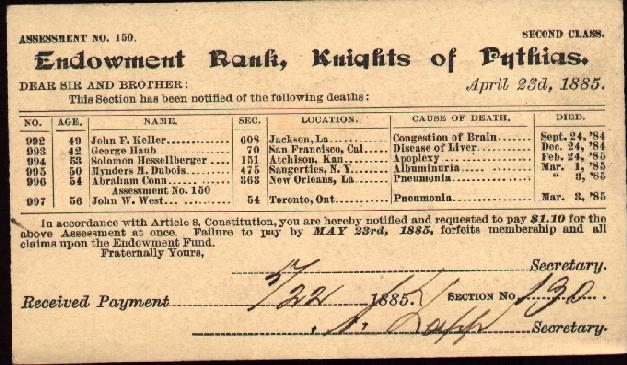 ASSESSMENT NO. 150. SECOND CLASS.
Endowment Rank, Knights of Pythias.
DEAR SIR AND BROTHER: April 23d, 1885.
This Section has been notified of the following deaths:
NO. AGE. NAME. SEC. LOCATION. CAUSE OF DEATH. DIED.
992 49 John F. Keller 608 Jackson, La Congestion of Brain Sept. 24, '84
993 42 George Haub 70 San Francisco, Cal Disease of Liver Dec. 24, '84
994 53 Solomon Hessellberger 151 Atchison, Kan Apoplexy Feb. 24, '85
995 50 Mynders M. Dubois 475 Saugerties, N. Y. Albuminuria Mar. 1, '85
996 54 Abraham Conn 363 New Orleans, La Pneumonia " 3, '85
Assessment No. 150
997 56 John W. West 54 Toronto, Ont Pneumonia Mar. 3, '85
In accordance with Article 8, Constitution, you are hereby notified and requested to pay $1.10 for the
above Assessment at once. Failure to pay by MAY 23rd, 1885, forfeits membership and all
claims upon the Endowment Fund.
Fraternally Yours,
Secretary.
Received Payment 5/22 1885. SECTION No. 130.
Secretary.